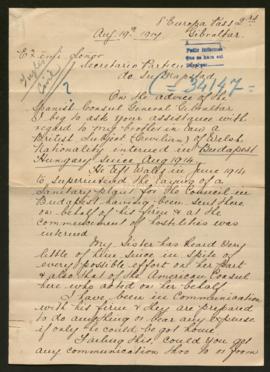 5 Europa Pass
Gibraltar.
Aug 19th 1917
Exmo Señor
Secretario
de Su Majestad
=34147=
On the advice of the
Spanish Consul General Gibraltar
I beg to ask your assistance with
regard to my brother in law a
British Subject (civilian) of Welsh
Nationality interned in Budapest
Hungary since Aug 1914.
He left Wales in June 1914
to superintend the laying of a
Sanitary plant for the Council in
Budapest having been sent there
on behalf of his firm & at the
commencement of hostilities was
interned
My Sister has heard very
little of him since in spite of
every possible effort on her part
& also that of the American Consul
here who acted on her behalf.
I have been in communication
with his firm & they are prepared
to do anything or bear any expense
if only he could be got home
Failing this, could you get
any communication thro to or from